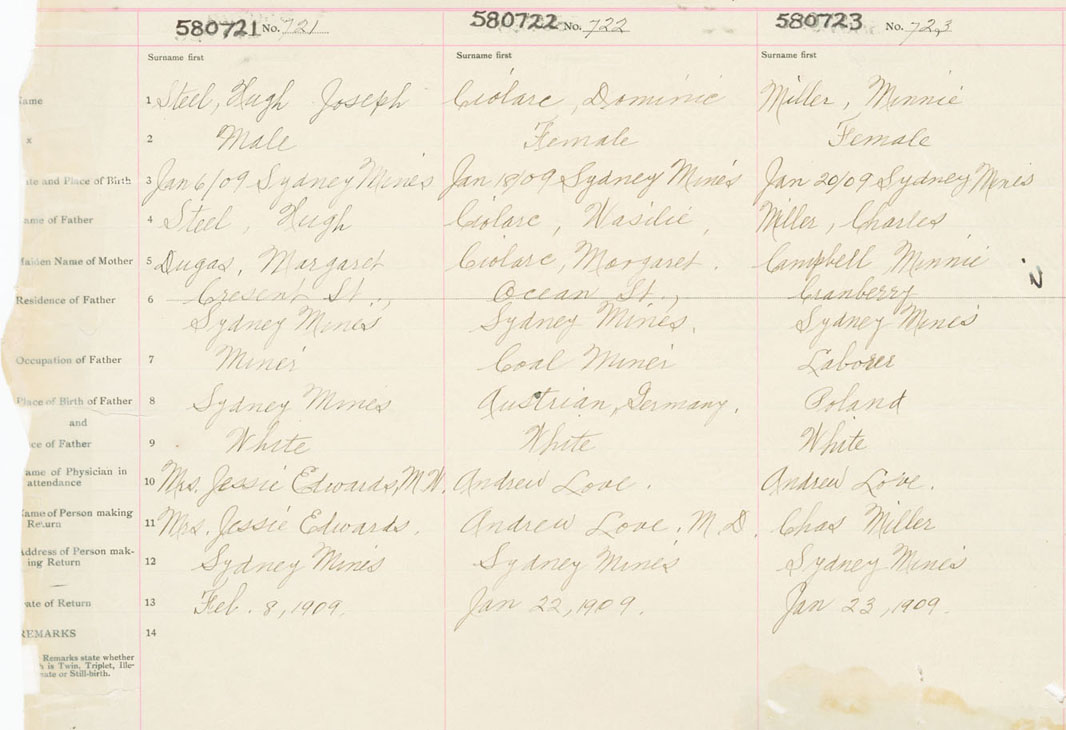 580721 No. 721 580722 No. 722 580723 No. 723
Surname first Surname first Surname first
ame 1 Steel, Hugh Joseph Ciolarc, Dominic Miller, Minnie
x 2 Male Female Female
ate and Place of Birth 3 Jan 6/09 Sydney Mines Jan 18/09 Sydney Mines Jan 20/09 Sydney Mines
ame of Father 4 Steel, Hugh Ciolarc, Wasilie, Miller, Charles
Maiden Name of Mother 5 Dugas, Margaret Ciolarc, Margaret. Campbell Minnie
Residence of Father 6 Cresent St., Ocean St., Cranberry
Sydney Mines Sydney Mines. Sydney Mines
Occupation of Father 7 Miner Coal Miner Laborer
Place of Birth of Father 8 Sydney Mines Austrian, Germany. Poland
and
ce of Father 9 White White White
ame of Physician in
attendance 10 Mrs. Jessie Edwards, M.W. Andrew Love. Andrew Love.
Name of Person making
Return 11 Mrs. Jessie Edwards. Andrew Love. M.D. Chas Miller
Address of Person mak-
ing Return 12 Sydney Mines Sydney Mines Sydney Mines
ate of Return 13 Feb. 8, 1909. Jan 22, 1909. Jan 23, 1909.
REMARKS 14
Remarks state whether
is Twin, Triplet, Ille-
ate or Still-birth.